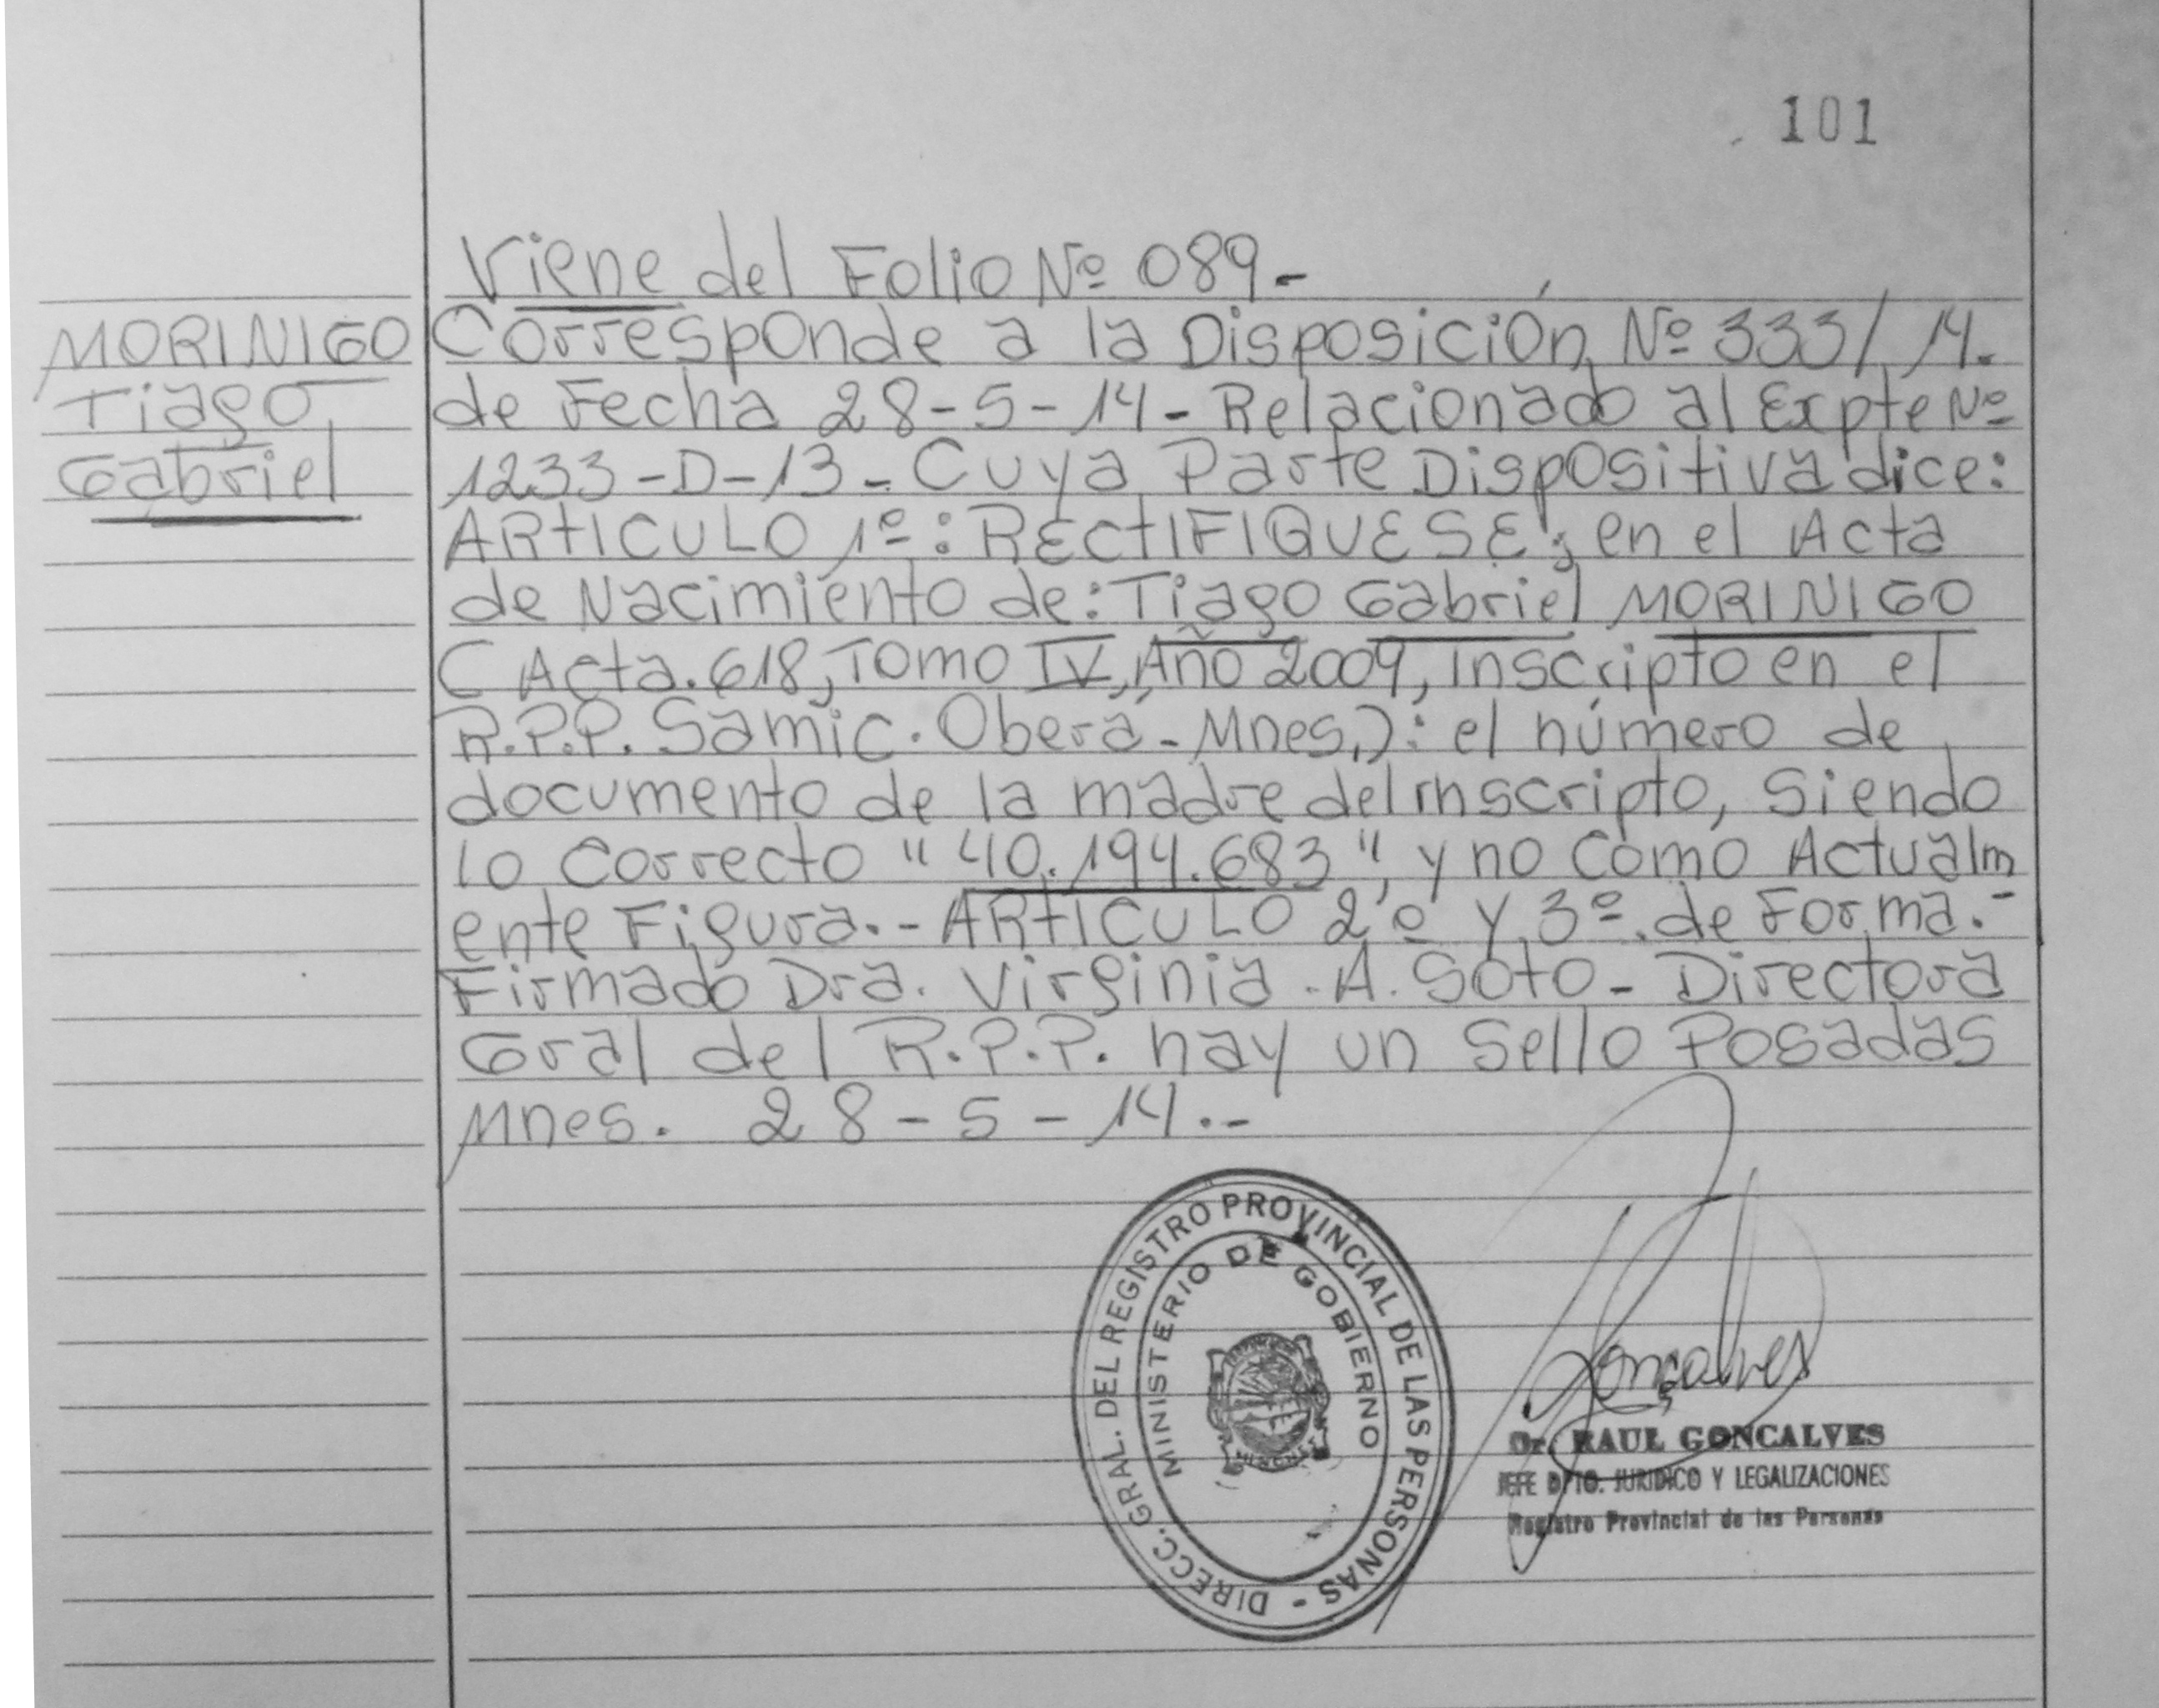 101
Viene del Folio Nº 089-
MORINIGO
Tiago
Gabriel
Corresponde a la Disposición Nº 333/14.
de Fecha 28-5-14- Relacionado al Expte Nº
1233-D-13- Cuya Parte Dispositiva dice:
ARTICULO 1º: RECTIFIQUESE; en el Acta
de Nacimiento de: Tiago Gabriel MORINIGO
( Acta. 618, Tomo IV, Año 2009, inscripto en el
R.P.P. Samic. Oberá- Mnes,): el número de
documento de la madre del inscripto, Siendo
lo Correcto "40.194.683", y no Como Actualm
ente Figura.- ARTICULO 2º Y 3º. de Forma.-
Firmado Dra. Virginia. A. Soto- Directora
Gral del R.P.P. hay un Sello Posadas
Mnes. 28-5-14.-
DIRECC. GRAL. DEL REGISTRO PROVINCIAL DE LAS PERSONAS -
MINISTERIO DE GOBIERNO
Gonçalves
Dr. RAUL GONCALVES
JEFE DPTO. JURIDICO Y LEGALIZACIONES
Registro Provincial de las Personas